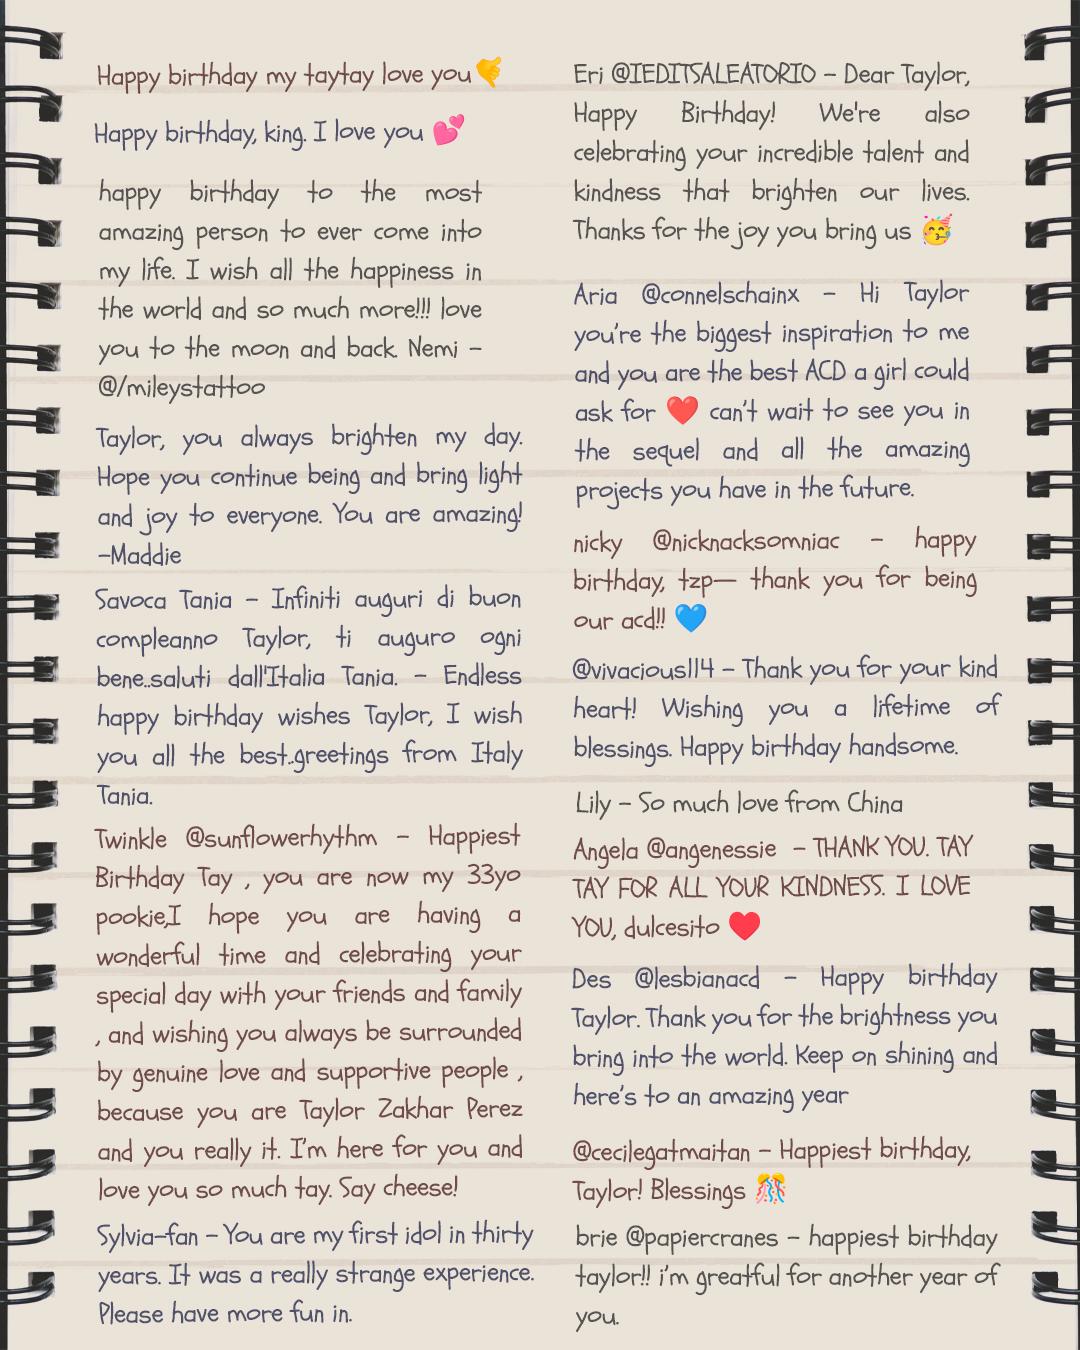 Happy birthday my taytay love you🤙
Happy birthday, king. I love you 💕
happy birthday to the most
amazing person to ever come into
my life. I wish all the happiness in
the world and so much more!!! love
you to the moon and back. Nemi -
@/mileystattoo
Taylor, you always brighten my day.
Hope you continue being and bring light
and joy to everyone. You are amazing!
-Maddie
Savoca Tania - Infiniti auguri di buon
compleanno Taylor, ti auguro ogni
bene..saluti dall'Italia Tania. - Endless
happy birthday wishes Taylor, I wish
you all the best..greetings from Italy
Tania.
Twinkle @sunflowerhythm - Happiest
Birthday Tay , you are now my 33yo
pookie,I hope you are having a
wonderful time and celebrating your
special day with your friends and family
, and wishing you always be surrounded
by genuine love and supportive people ,
because you are Taylor Zakhar Perez
and you really it. I'm here for you and
love you so much tay. Say cheese!
Sylvia-fan - You are my first idol in thirty
years. It was a really strange experience.
Please have more fun in.
Eri @IEDITSALEATORIO - Dear Taylor,
Happy Birthday! We're also
celebrating your incredible talent and
kindness that brighten our lives.
Thanks for the joy you bring us 🥳
Aria @connelschainx - Hi Taylor
you're the biggest inspiration to me
and you are the best ACD a girl could
ask for ❤️ can't wait to see you in
the sequel and all the amazing
projects you have in the future.
nicky @nicknacksomniac - happy
birthday, tzp— thank you for being
our acd!! 💙
@vivacious114 - Thank you for your kind
heart! Wishing you a lifetime of
blessings. Happy birthday handsome.
Lily - So much love from China
Angela @angenessie - THANK YOU. TAY
TAY FOR ALL YOUR KINDNESS. I LOVE
YOU, dulcesito ♥️
Des @lesbianacd - Happy birthday
Taylor. Thank you for the brightness you
bring into the world. Keep on shining and
here's to an amazing year
@cecilegatmaitan - Happiest birthday,
Taylor! Blessings 🎊
brie @papiercranes - happiest birthday
taylor!! i'm greatful for another year of
you.